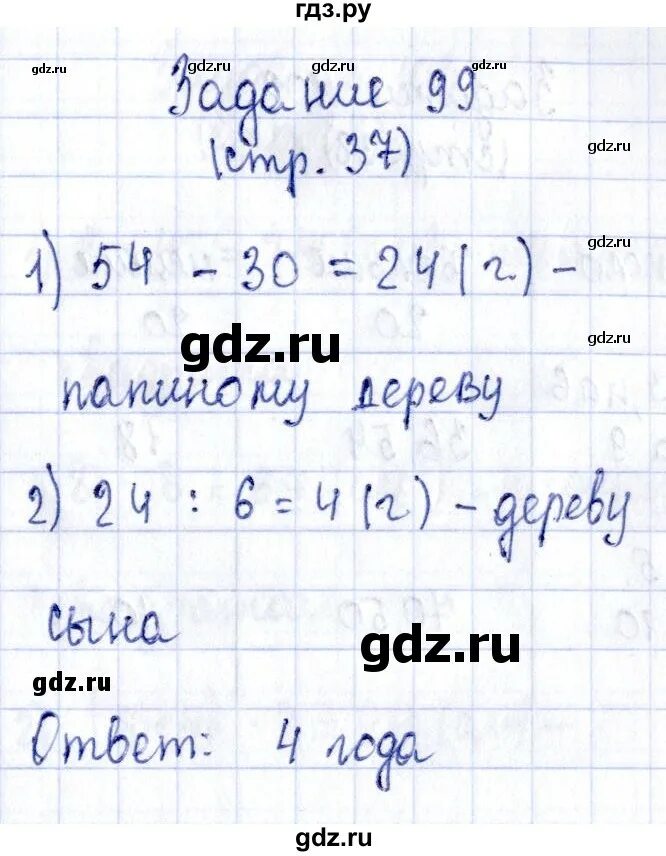 гдз.ру
gdz.ru gdz.ru gdz.ru
Задание 99
gdz.ru
(стр. 37)
gdz.ru
1) 54 - 30 = 24 (г.) -
gdz.ru
gdz.ru
папиному дереву
2) 24 : 6 = 4 (г) - дереву
сына
gdz.ru
gdz.ru
Ответ: 4 года
gdz.ru